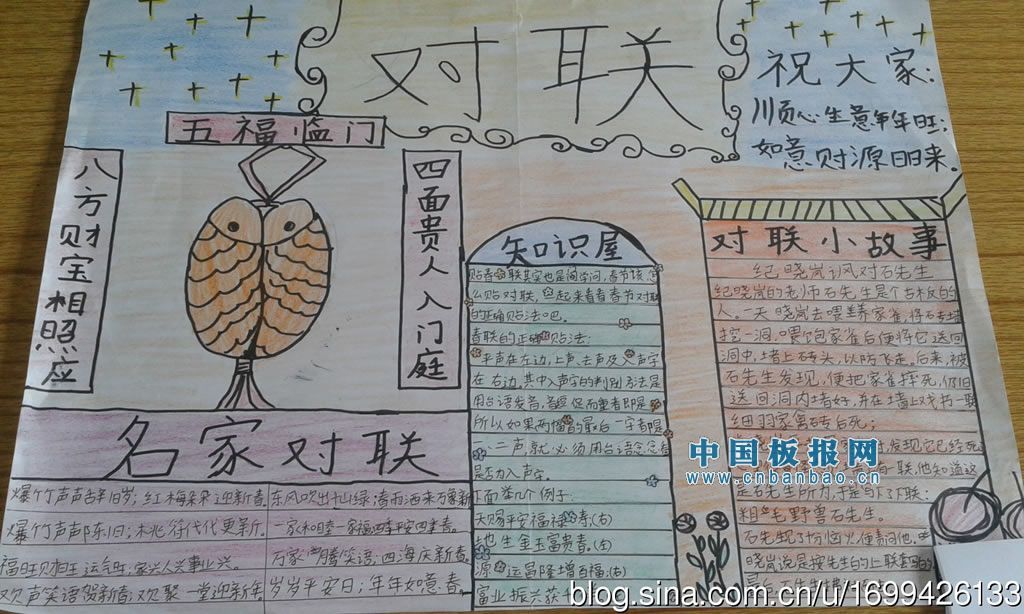 对联
祝大家:
顺心生意年年旺;
如意财源日日来。
五福临门
八方财宝相照应
四面贵人入门庭
知识屋
贴春联其实也是门学问,春节该怎
么贴对联,
的正确贴法吧。
春联的正确贴法:
平声在左边,上声、去声及入声字
在右边,其中入声字的判别方法是
用台语发音,
所以如果两幅的最后一字都是
一、二声,就必须用台语念念看
是否为入声字。
下面举几个例子:
天赐平安福禄寿(右)
地生金玉富贵春。(左)
源运昌隆增百福(右)
富业振兴获
对联小故事
纪晓岚讽对石先生
纪晓岚的老师石先生是个古板的
人。一天晓岚去喂养家雀,将砖墙
挖一洞,喂饱家雀后便将它送回
洞中,堵上砖头,以防飞走。后来,被
石先生发现,便把家雀摔死,仍旧
送回洞内堵好,并在墙上戏书一联
细羽家禽砖后死;
发现它已经死
一联,他知道这
是石先生所为,
粗毛野兽石先生。
石先生
晓岚说是按先生的上联套
名家对联
爆竹声声辞旧岁;红梅朵朵迎新春。
东风吹出千山绿;春雨洒来万象新
爆竹声声除旧;桃符代代更新。
一家和睦一家福;四季平安四季春。
福旺财旺运气旺;家兴人兴事业兴。
万家腾笑语;四海庆新春。
欢声笑语贺新春;欢聚一堂迎新年
岁岁平安日;年年如意春。
中国板报网
www.cnbanbao.cn
blog.sina.com.cn/u/1699426133